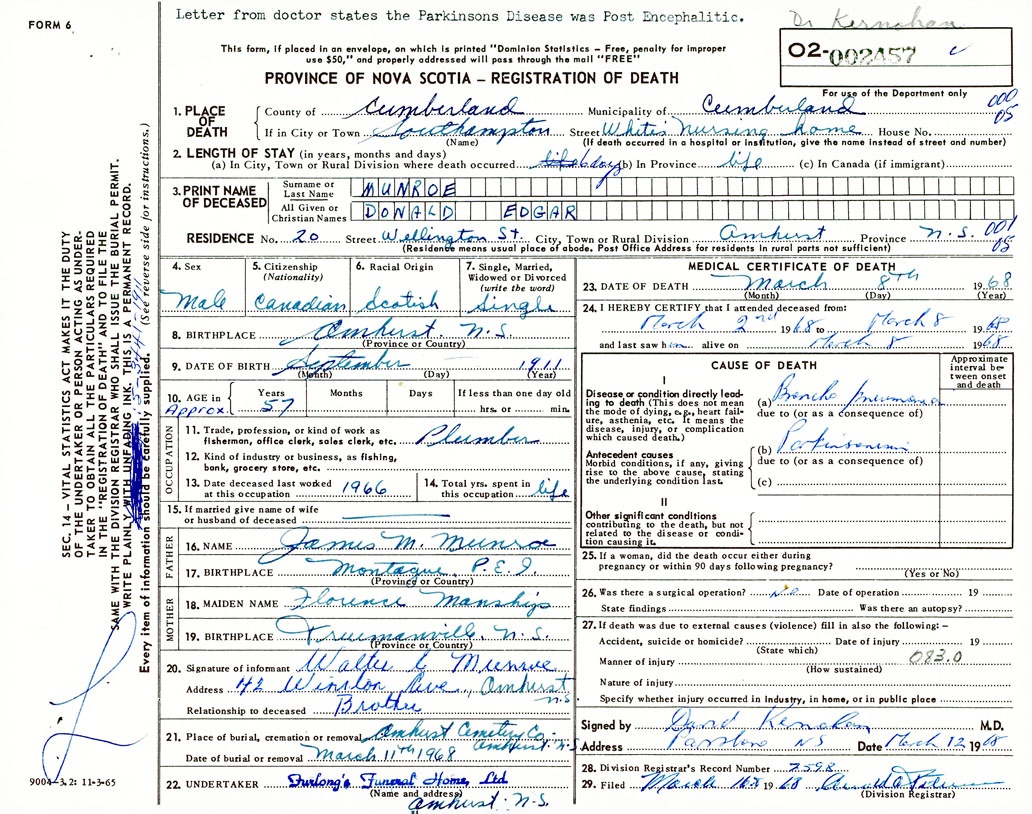 Letter from doctor states the Parkinsons Disease was Post Encephalitic.
Dr Kernohan
FORM 6
This form, if placed in an envelope, on which is printed "Dominion Statistics – Free, penalty for improper
use $50," and properly addressed will pass through the mail "FREE"
02-002457
PROVINCE OF NOVA SCOTIA – REGISTRATION OF DEATH
For use of the Department only
000
05
1. PLACE OF DEATH
County of Cumberland Municipality of Cumberland
If in City or Town Southampton Street White's Nursing home House No.
(Name) (If death occurred in a hospital or institution, give the name instead of street and number)
2. LENGTH OF STAY (in years, months and days)
(a) In City, Town or Rural Division where death occurred 6 days (b) In Province life (c) In Canada (if immigrant)
3. PRINT NAME OF DECEASED
Surname or Last Name MUNROE
All Given or Christian Names DONALD EDGAR
001
05
RESIDENCE No. 20 Street Wellington St. City, Town or Rural Division Amhurst Province N.S.
(Residence means usual place of abode. Post Office Address for residents in rural parts not sufficient)
4. Sex Male
5. Citizenship (Nationality) Canadian
6. Racial Origin Scotish
7. Single, Married, Widowed or Divorced (write the word) Single
8. BIRTHPLACE Amhurst N.S.
(Province or Country)
9. DATE OF BIRTH September 1911
(Month) (Day) (Year)
10. AGE in Years Months Days If less than one day old
Approx. 57 hrs. or min.
OCCUPATION
11. Trade, profession or kind of work as
fisherman, office clerk, sales clerk, etc. Plumber
12. Kind of industry or business, as fishing,
bank, grocery store, etc.
13. Date deceased last worked
at this occupation 1966
14. Total yrs. spent in
this occupation life
15. If married give name of wife
or husband of deceased
FATHER
16. NAME James M. Munroe
17. BIRTHPLACE Montague P.E.I.
(Province or Country)
MOTHER
18. MAIDEN NAME Florence Manship
19. BIRTHPLACE Truemanville, N.S.
(Province or Country)
20. Signature of informant Walter C Munroe
Address 42 Winston Ave., Amhurst N.S
Relationship to deceased Brother
21. Place of burial, cremation or removal Amhurst Cemetery Co. Amhurst. N.S
Date of burial or removal March 11th 1968
22. UNDERTAKER Furlong's Funeral Home, Ltd
(Name and address)
Amhurst. N.S.
MEDICAL CERTIFICATE OF DEATH
23. DATE OF DEATH March 8TH 1968
(Month) (Day) (Year)
24. I HEREBY CERTIFY that I attended deceased from:
March 2nd 1968 to March 8 1968
and last saw him alive on March 8 1968
CAUSE OF DEATH
Approximate interval between onset and death
I
Disease or condition directly leading to death (This does not mean the mode of dying, e.g., heart failure, asthenia, etc. It means the disease, injury, or complication which caused death.)
(a) Broncho pneumonia
due to (or as a consequence of)
Antecedent causes
Morbid conditions, if any, giving rise to the above cause, stating the underlying condition last.
(b) Parkinsonism
due to (or as a consequence of)
(c)
II
Other significant conditions
contributing to the death, but not related to the disease or condition causing it.
25. If a woman, did the death occur either during
pregnancy or within 90 days following pregnancy?
(Yes or No)
26. Was there a surgical operation? No Date of operation 19
State findings Was there an autopsy?
27. If death was due to external causes (violence) fill in also the following: –
Accident, suicide or homicide? Date of injury 19
(State which)
Manner of injury 083.0
(How sustained)
Nature of injury
Specify whether injury occurred in industry, in home, or in public place
Signed by David Kernohan M.D.
Address Parrsboro NS Date March 12 1968
28. Division Registrar's Record Number 2598
29. Filed March 1968
(Division Registrar)
SEC. 14 – VITAL STATISTICS ACT MAKES IT THE DUTY
OF THE UNDERTAKER OR PERSON ACTING AS UNDER-
TAKER TO OBTAIN ALL THE PARTICULARS REQUIRED
IN THE "REGISTRATION OF DEATH" AND TO FILE THE
SAME WITH THE DIVISION REGISTRAR WHO SHALL ISSUE THE BURIAL PERMIT.
WRITE PLAINLY WITH UNFADING INK. THIS IS A PERMANENT RECORD.
Every item of information should be carefully supplied. (See reverse side for instructions.)
9004-3.2: 11-3-65